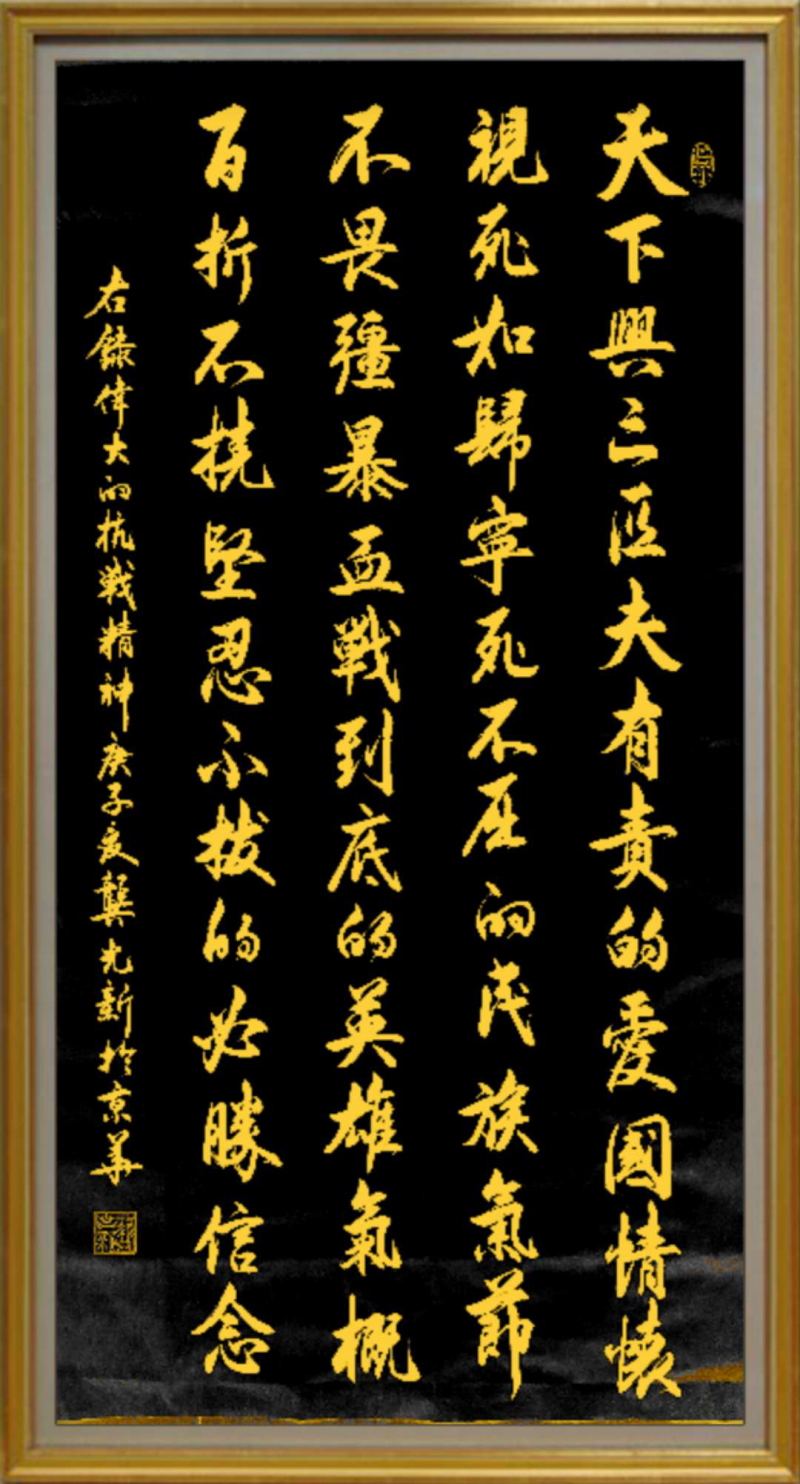 天下興亡匹夫有責的愛國情懷
視死如歸寧死不屈的民族氣節
不畏彊暴血戰到底的英雄氣概
百折不撓堅忍不拔的必勝信念
右錄偉大的抗戰精神庚子夏龔光新於京華